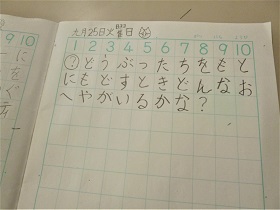 九月25日火曜日
1 2 3 4 5 6 7 8 9 10
?どうぶつたちをもと
にもどすときどんなお
へやがいるかな?
9 10
に
を
ぐ